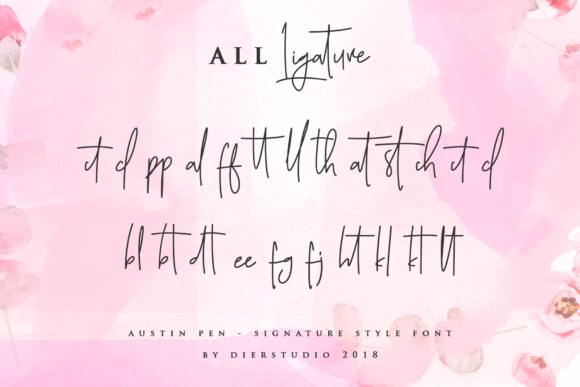 ALL Ligature
ct cl pp al ff tt ll th at st ch ct cl
bl bt dt ee fg fj ht kl kt lt
AUSTIN PEN - SIGNATURE STYLE FONT
BY DIERSTUDIO 2018